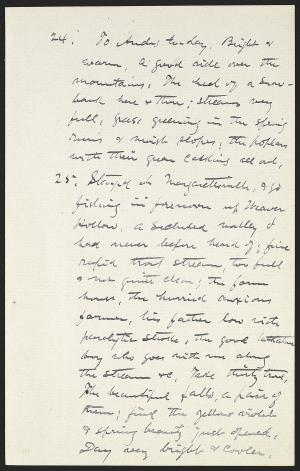 24. To Andes to-day, Bright &
warm, a good ride over the
mountains, The chest of a snow-
bank here & there; streams very
full, grass greening in the spring
runs & moist slopes; the poplars
with their green catkins all out,
25. Stayed in Margarettville, & go
fishing in forenoon up Weaver
Hollow, a secluded valley I
had never before heard of; fine
rapid trout stream, too full
& not quite clear; the farm
house, the hurried
farmer, his father low with
paralytic stroke, the good
boy who goes with me along
the stream &c, Take thirty trout,
The beautiful falls, a pair of
them; find the yellow violet
& spring beauty just opened,
Day very bright & cooler,